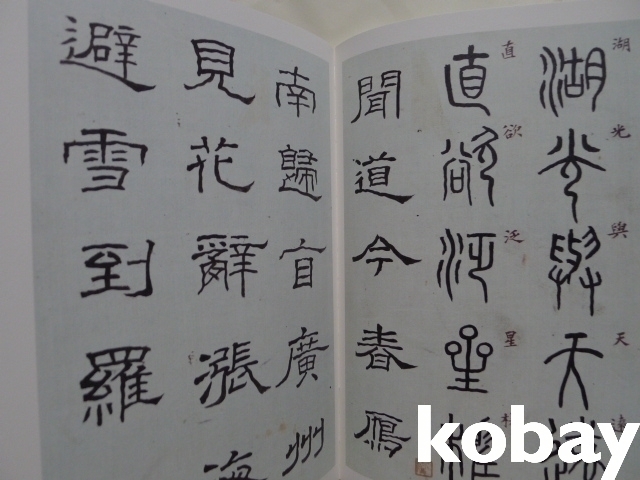 湖光與天遠
湖光與天遠
直欲泛星槎
直欲泛星
聞道今春鴈
南歸自廣州
見花辭漲海
避雪到羅
kobay